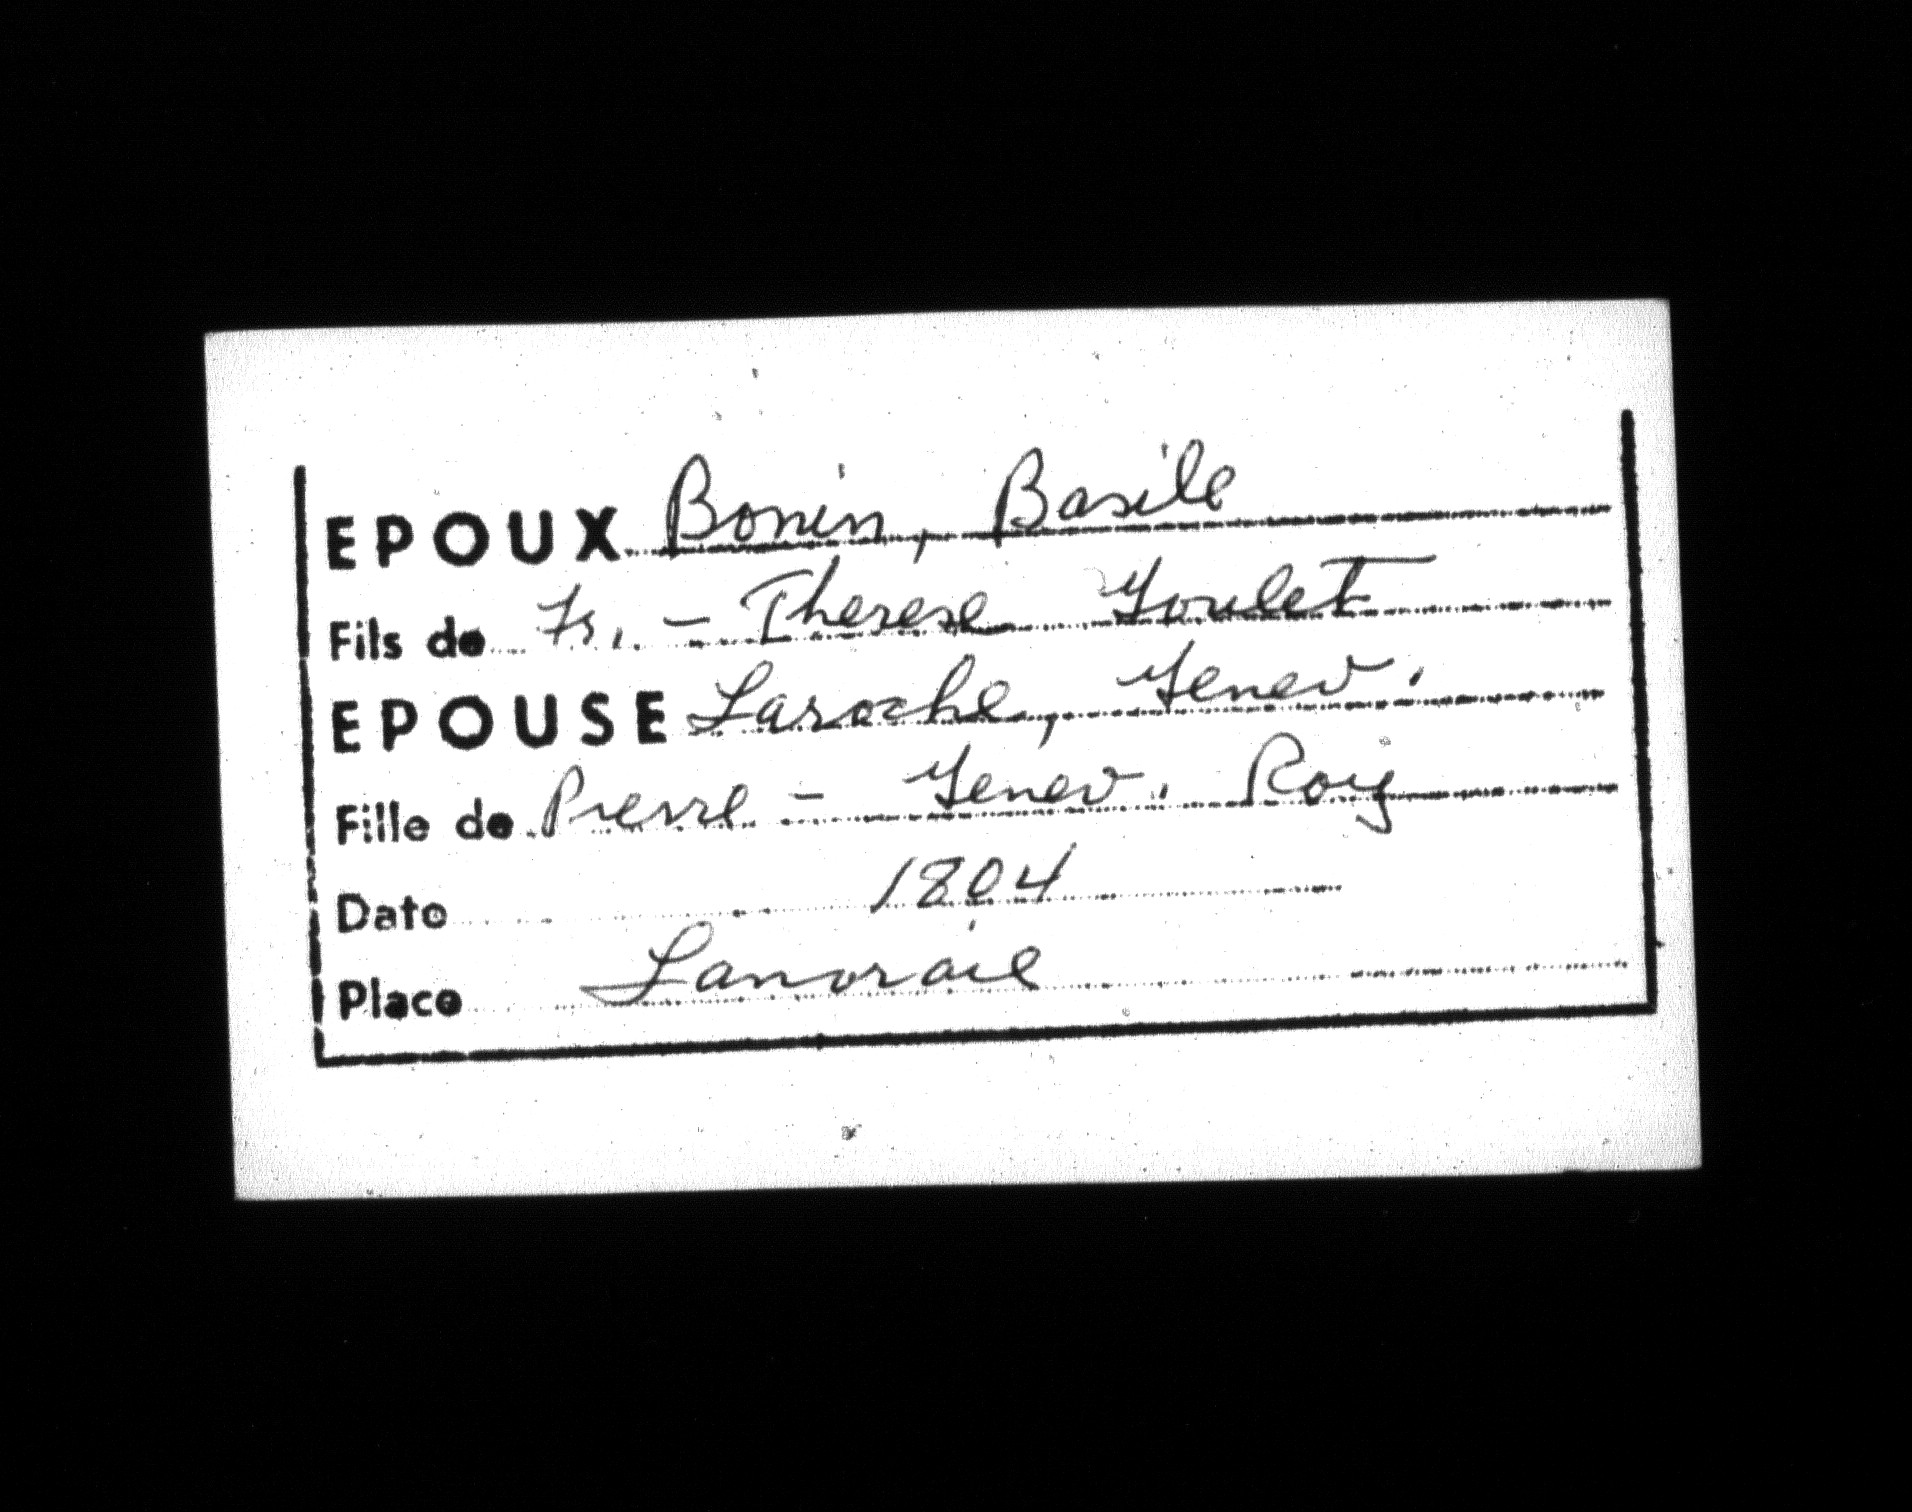 EPOUX Bonin, Basile
Fils de Fr. - Therese Goulet
EPOUSE Laroche, Genev.
Fille de Pierre - Genev. Roy
Date 1804
Place Lanoraie